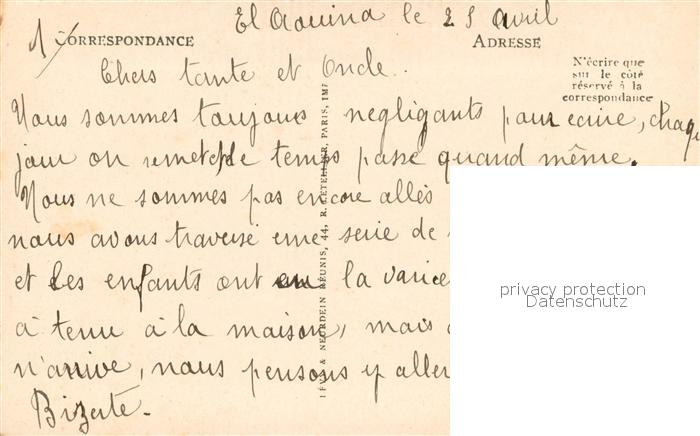 El Aouina le 25 Avril
1/ CORRESPONDANCE ADRESSE
N'écrire que
sur le côté
réservé à la
correspondance
Chers tante et Oncle.
Nous sommes toujours negligants pour ecrire, chaque
jour on remet, le temps passe quand même.
Nous ne sommes pas encore allés
nous avons traversé une serie de
et les enfants ont eu la varice
a tenu à la maison, mais
n'arrive, nous pensons y aller
Bizerte.
LÉVY & NEURDEIN RÉUNIS, 44, R. LETELLIER, PARIS, IMP
privacy protection
Datenschutz